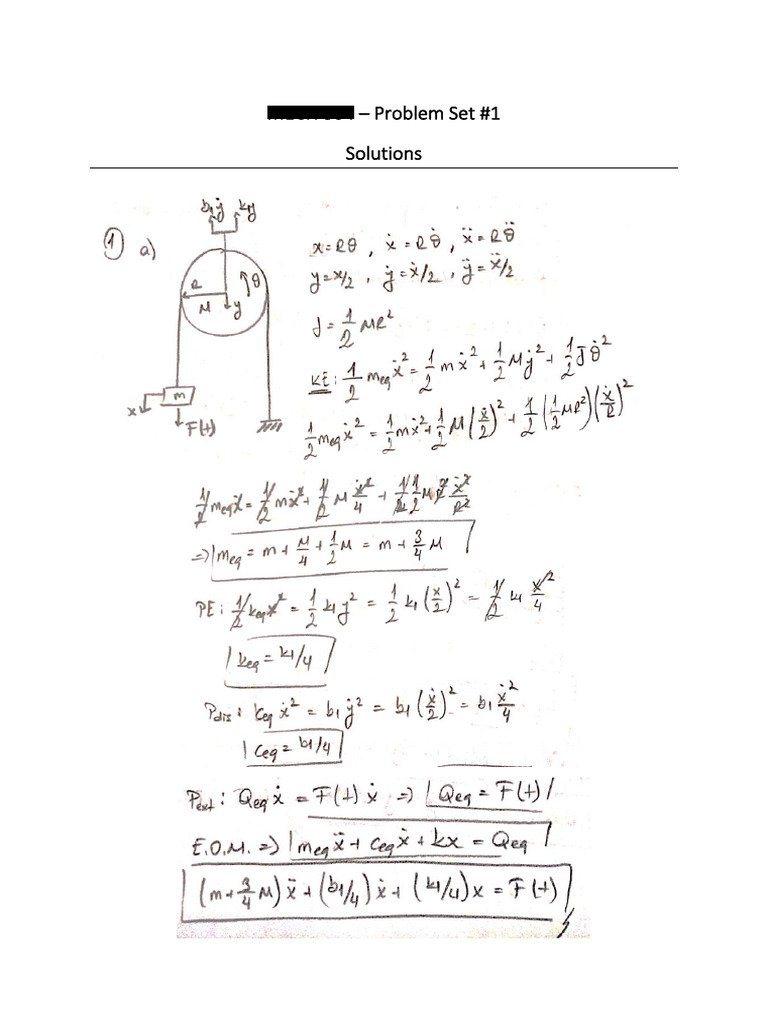 – Problem Set #1
Solutions
① a)
b₁ẏ k₁y
R θ
M y
m
x
F(t)
x = Rθ , ẋ = Rθ̇ , ẍ = Rθ̈
y = x/2 , ẏ = ẋ/2 , ÿ = ẍ/2
J = 1/2 MR²
KE: 1/2 meq ẋ² = 1/2 mẋ² + 1/2 Mẏ² + 1/2 Jθ̇²
1/2 meq ẋ² = 1/2 mẋ² + 1/2 M(ẋ/2)² + 1/2 (1/2 MR²)(ẋ/R)²
1/2 meq ẋ² = 1/2 mẋ² + 1/2 M ẋ²/4 + 1/2 1/2 MR² ẋ²/R²
=> meq = m + M/4 + 1/2 M = m + 3/4 M
PE: 1/2 keq x² = 1/2 k₁y² = 1/2 k₁(x/2)² = 1/2 k₁ x²/4
keq = k₁/4
Pdis: Ceq ẋ² = b₁ẏ² = b₁(ẋ/2)² = b₁ ẋ²/4
Ceq = b₁/4
Pext: Qeq ẋ = F(t) ẋ => Qeq = F(t)
E.O.M. => meq ẍ + Ceq ẋ + kx = Qeq
(m + 3/4 M) ẍ + (b₁/4) ẋ + (k₁/4) x = F(t)